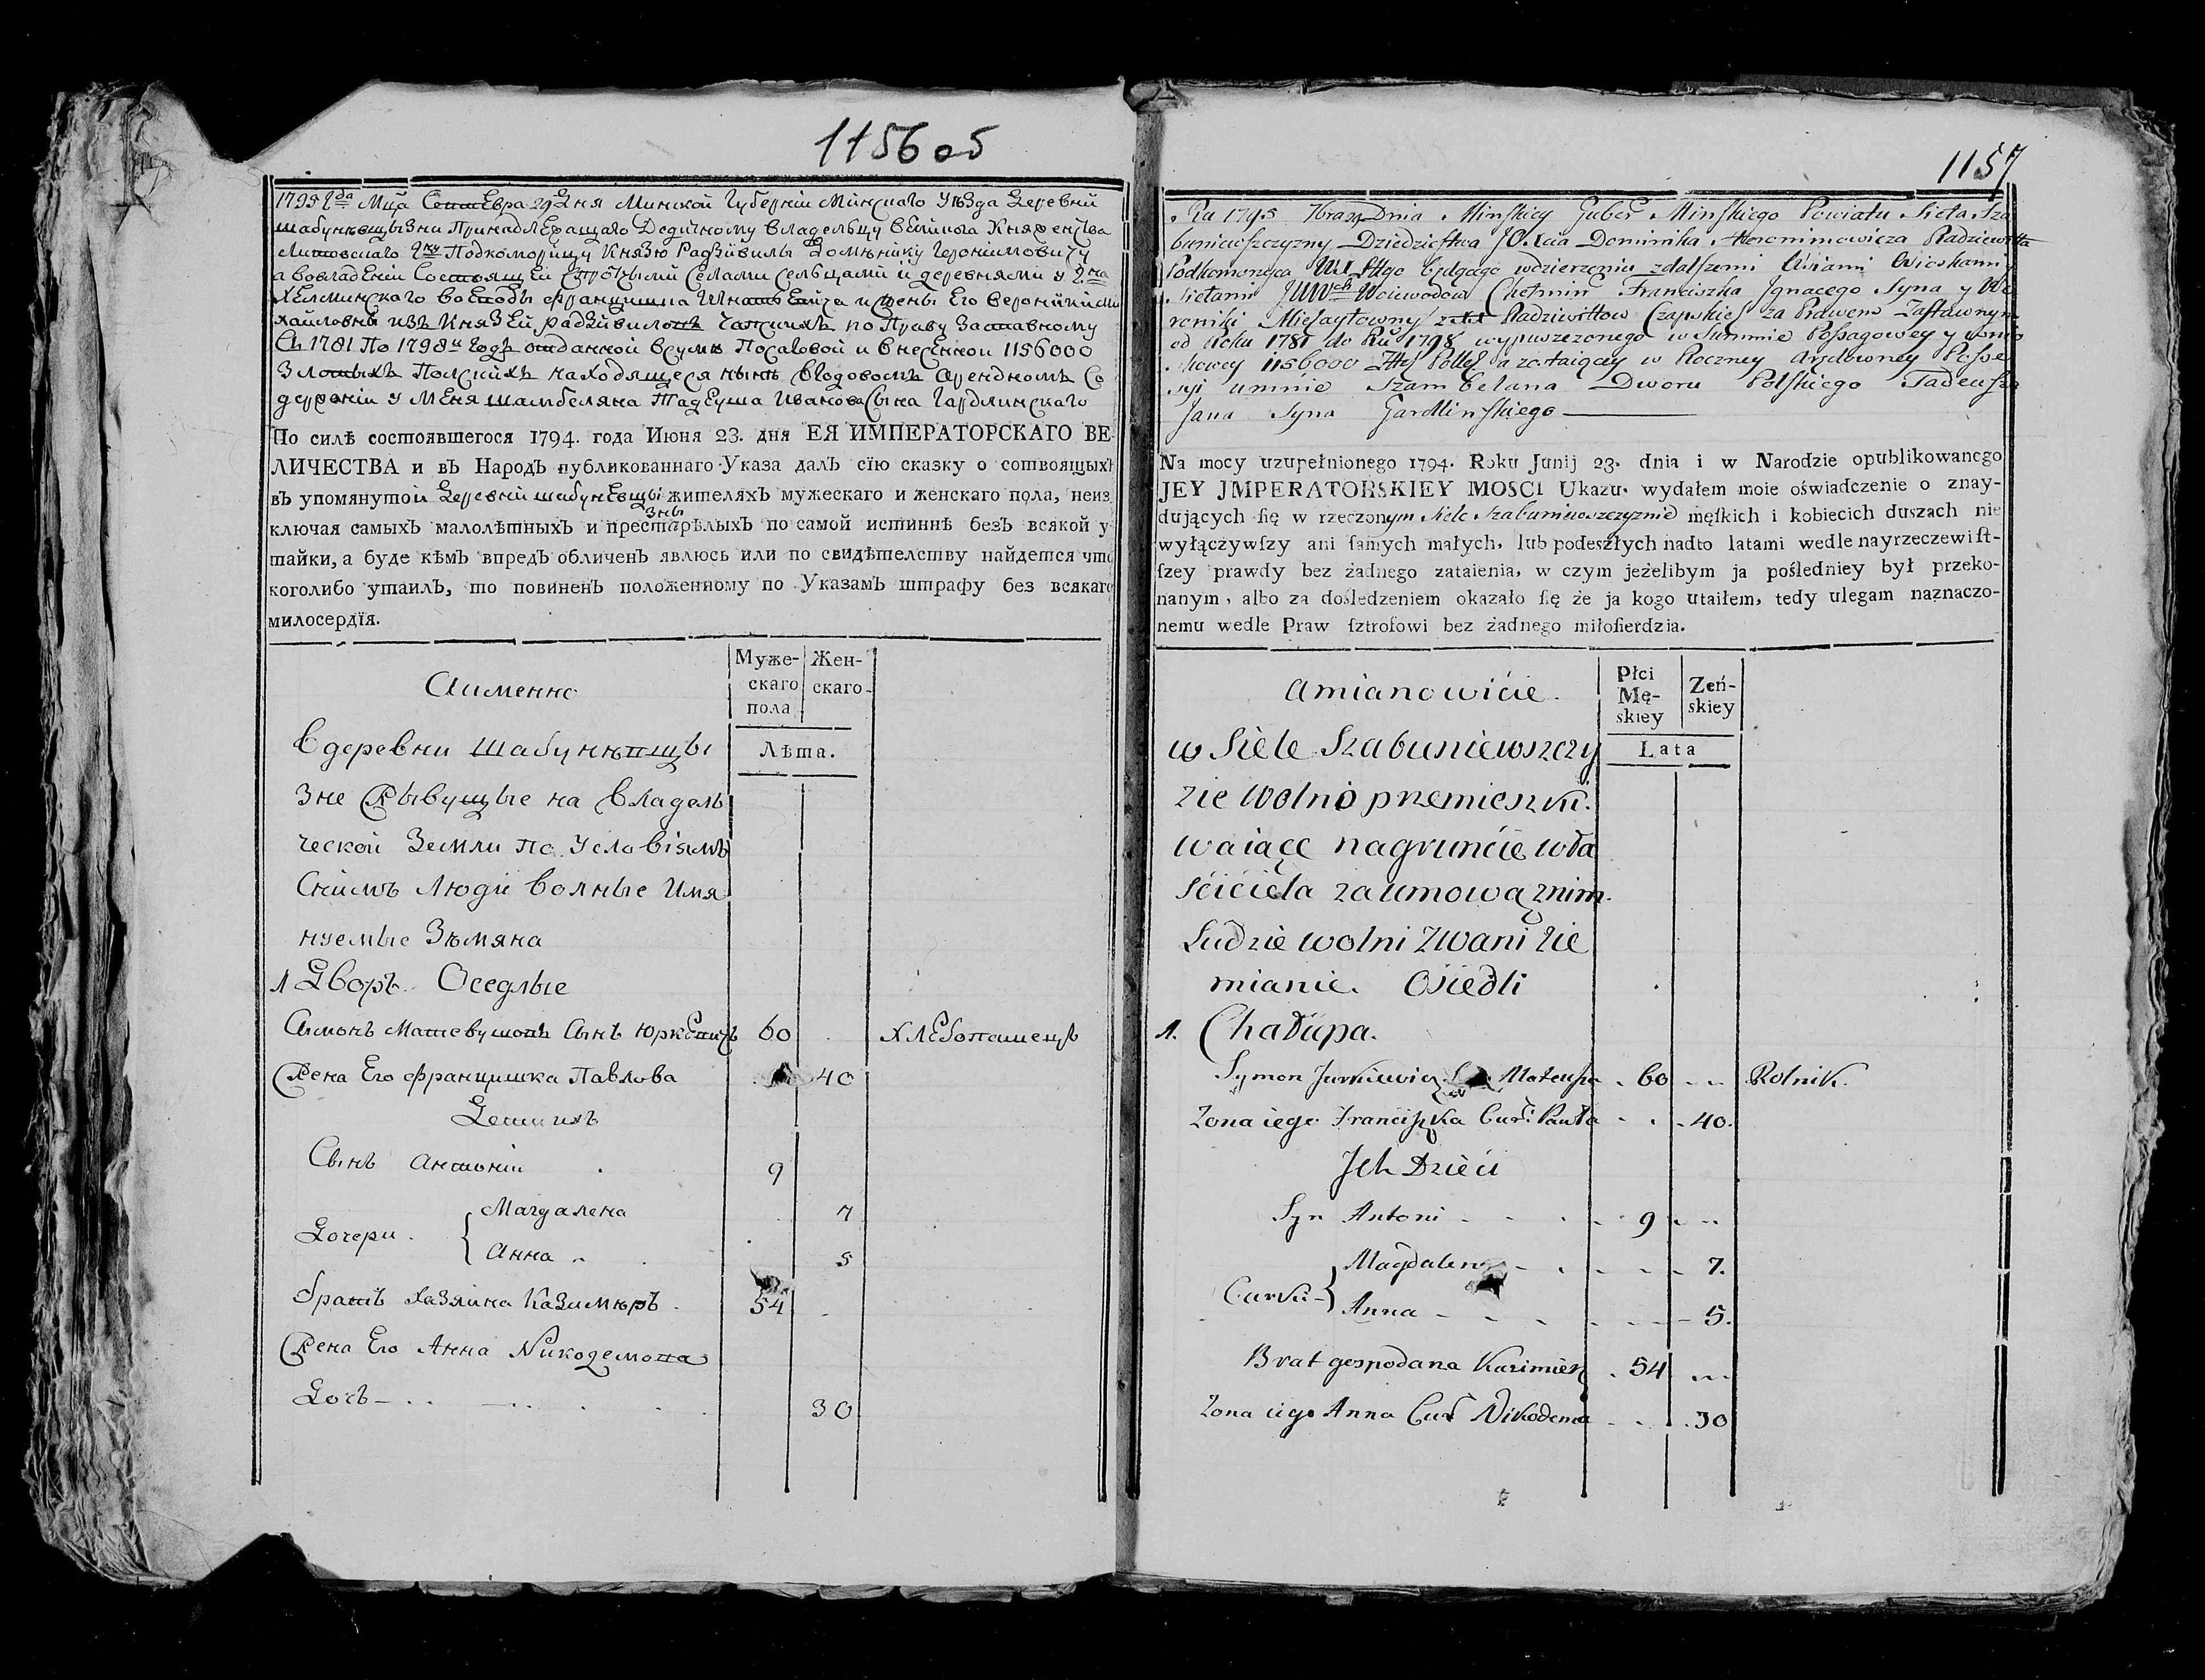 1156 об
1795 Г:да Мца Сентебра 29 Дня Минской Губерніи Минскаго Уѣзда Деревни
шабунѣвщызни Принадлежащаго Дедичному Владельцу Великога Княженства
Литовскаго Подкоморыцу Князю Радзивилы Доменіку Геронімовичу
а вовладеніи Состоящей Спротчыми Селами Сельцами и деревнями у
Хелминскаго воеводы Францишка и жены Его Веронiки Ми
хайловны изъ Князей радзивиловъ Чапскихъ по Праву Заставному
Съ 1781 По 1798 годъ отданной Всуме Посаговой и внесенной 1156000
Злотыхъ Полскихъ находящеся нынѣ Вгодовомъ Арендномъ Со
держаніи у Меня шамбеляна Тадеуша Иванова Сына Гардлинскаго
По силѣ состоявшегося 1794. года Июня 23. дня ЕЯ ИМПЕРАТОРСКАГО ВЕ-
ЛИЧЕСТВА и въ Народъ публикованнаго Указа далъ сїю сказку о сотвоящыхъ
въ упомянутой Деревни шабунѣвщызнѣ жителяхъ мужескаго и женскаго пола, неиз
ключая самыхъ малолѣтныхъ и престарѣлыхъ по самой истиннѣ безъ всякой у
тайки, а буде кѣмъ впредъ обличенъ явлюсь или по свидѣтелству найдется что
коголибо утаилъ, то повиненъ положенному по Указамъ штрафу без всякаго
милосердїя.
Аименно
Муже-
скаго
пола
Жен-
скаго
Лѣта.
Вдеревни Шабунѣвщы
зне Жывущые на Владель
ческой Земли По Условіямъ
Снимъ Люди Волные Имя
нуемые Зѣмяна
1 Дворъ Оседлые
Симонъ Матевушовъ Сынъ Юркевичъ 60 Хлебопашецъ
Жена Его Францишка Павлова 40
Детиихъ
Сынъ Антоніи 9
Дочери { Магдалена 7
Анна 5
братъ Хазяина Казимѣръ 54
Жена Его Анна Никодемова
Дочь 30
1157
Ru 1795 7bra 29 Dnia Minskiey Guber Minskiego Powiatu Sieła Sza
buniewszczyzny Dziedzictwa JO. Xcia Dominika Hieronimowicza Radziwiłła
Podkomorzyca WX Litgo będącego wdzierzeniu zdalszemi Wsiami Wioskami y
Siełami JWWch Woiewodow Chełmin Franciszka Jgnacego Syna y We
roniki Michayłowny z Radziwiłłow Czapskich za Prawem Zastawnym
od Roku 1781 do Ru 1798 wypuszczonego w Summie Possagowey y wnio
skowey 1156000 Złł Poll a zostaiącey w Roczney Arędowney Posse
syi umnie Szambelana Dworu Polskiego Tadeusza
Jana Syna Gardlinskiego
Na mocy uzupełnionego 1794. Roku Junij 23. dnia i w Narodzie opublikowanego
JEY JMPERATORSKIEY MOSCI Ukazu. wydałem moie oświadczenie o znay-
dujących ſię w rzeczonym Siele Szabuniewszczyznie męſkich i kobiecich duszach nie
wyłączywſzy ani ſamych małych, lub podeszłych nadto latami wedle nayrzeczewiſt-
ſzey prawdy bez żadnego zataienia, w czym jeżelibym ja pośledniey był przeko-
nanym, albo za dośledzeniem okazało ſię że ja kogo utaiłem, tedy ulegam naznaczo-
nemu wedle Praw ſztrofowi bez żadnego miłoſierdzia.
amianowićie.
Płci
Mę-
skiey
Zeń-
skiey
Lata
w Siele Szabuniewszczy
znie Wolno przemieszki.
waiące nagrunćie wła
śćićiela zaumową znim.
Ludzie wolni Zwani Zie
mianie. Ośiedli
1. Chałupa.
Symon Jurkiewicz Mateusza 60 Rolnik.
Zona iego Franciszka Cur: Pawła 40.
Jch Dzieći
Syn Antoni 9
Curki { Magdalena 7.
Anna 5.
Brat gospodara Kazimierz 54
Zona iego Anna Cur Nikodema 30